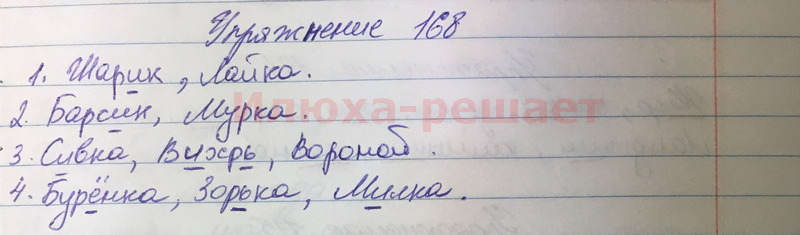 Упражнение 168
1. Шарик, Лайка.
2. Барсик, Мурка.
Илюха-решает
3. Сивка, Вихрь, Вороной.
4. Бурёнка, Зорька, Милка.